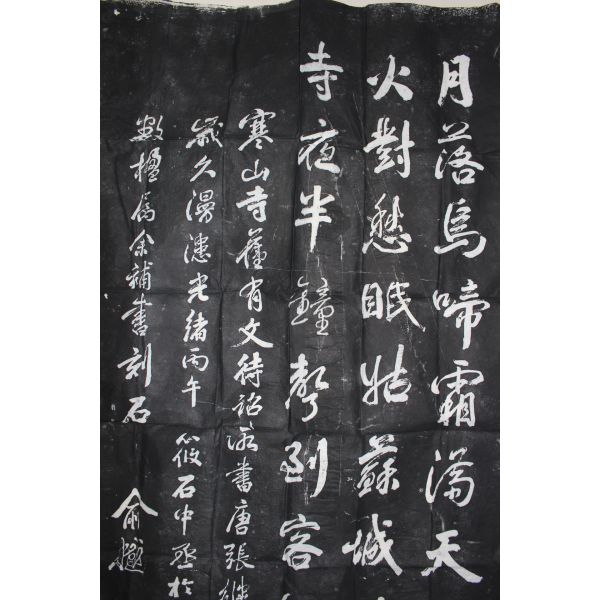 月落烏啼霜滿天
火對愁眠姑蘇城
寺夜半鐘聲到客
寒山寺舊有文待詔所書唐張繼
歲久漫漶光緒丙午筱石中丞於
數楹屬余補書刻石
俞樾